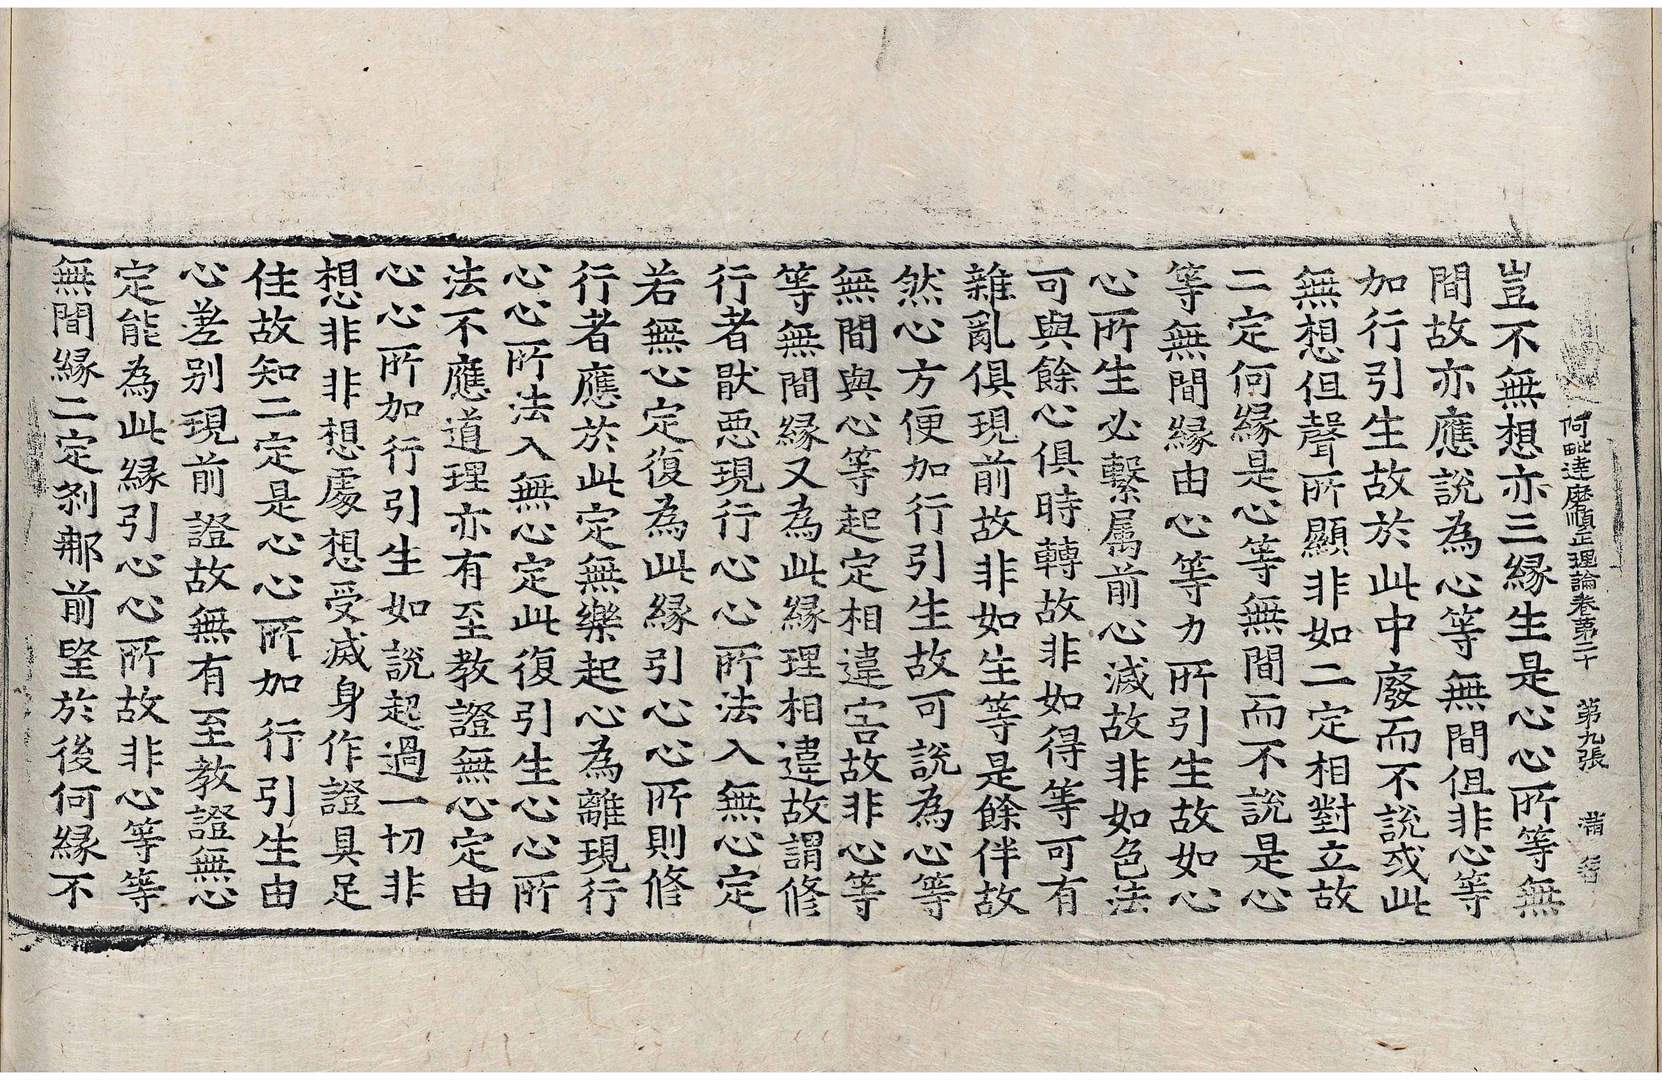 阿毗達磨順正理論卷第二十 第九張 滿
豈不無想亦三緣生是心心所等無
間故亦應說為心等無間但非心等
加行引生故於此中廢而不說或此
無想但聲所顯非如二定相對立故
二定何緣是心等無間而不說是心
等無間緣由心等力所引生故如心
心所生必繫属前心滅故非如色法
可與餘心俱時轉故非如得等可有
雜亂俱現前故非如生等是餘伴故
然心方便加行引生故可說為心等
無間與心等起定相違害故非心等
等無間緣又為此緣理相違故謂修
行者猒惡現行心心所法入無心定
若無心定復為此緣引心心所則修
行者應於此定無樂起心為離現行
心心所法入無心定此復引生心心所
法不應道理亦有至教證無心定由
心心所加行引生如說超過一切非
想非非想處想受滅身作證具足
住故知二定是心心所加行引生由
心差别現前證故無有至教證無心
定能為此緣引心心所故非心等等
無間緣二定剎那前望於後何緣不